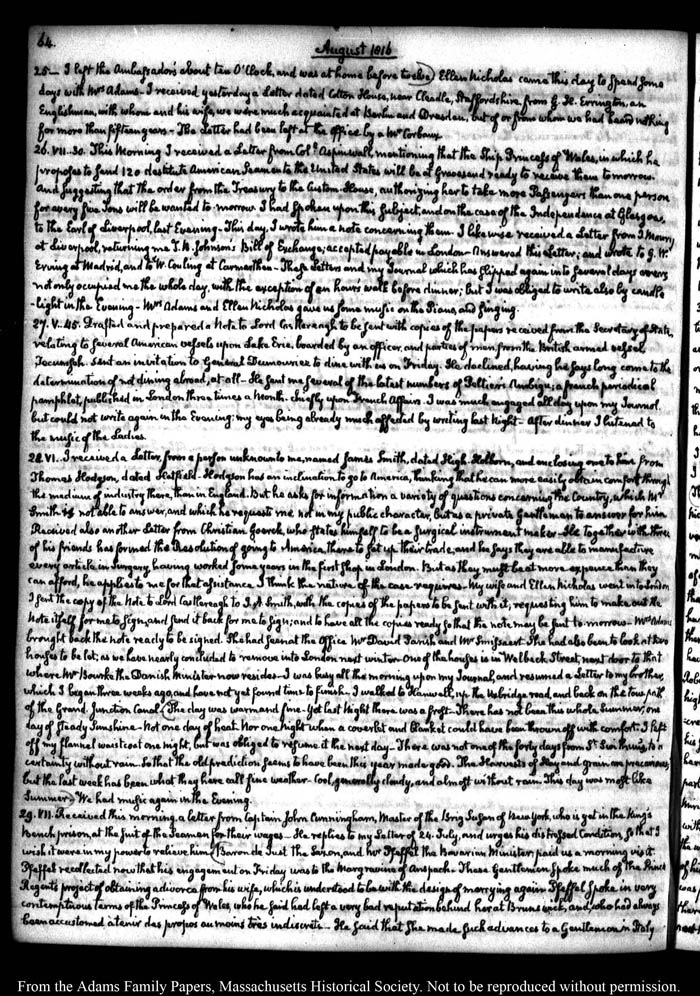 64.
August 1816
25— I left the Ambassador's about ten O'Clock, and was at home before twelve) Ellen Nicholas came this day to spend some
days with Mrs Adams. I received yesterday a Letter dated Cotton House, near Cheadle, Staffordshire, from G. H. Errington, an
Englishman, with whom and his wife, we were much acquainted at Berlin and Dresden, but of or from whom we had heard nothing
for more than fifteen years— The Letter had been left at the office by a Mr Corbaux.
26. VII.30. This Morning I received a Letter from Coll Aspinwall, mentioning that the Ship Princess of Wales, in which he
proposes to send 120 destitute American Seamen to the United States will be at Gravesend ready to receive them to morrow.
And suggesting that the order from the Treasury to the Custom-House, authorizing her to take more Passengers than one person
for every five Tons will be wanted to-morrow. I had spoken upon this subject, and on the case of the Independence at Glasgow,
to the Earl of Liverpool, last Evening— This day, I wrote him a note concerning them— I likewise received a Letter from J Maury
at Liverpool, returning me T. H. Johnson's Bill of Exchange; accepted payable in London— Answered this Letter; and wrote to G. W.
Erving at Madrid, and to W. Couling at Carmarthen— These Letters and my Journal which has slipped again into several days arrears
not only occupied me the whole day, with the exception of an hour's walk before dinner; but I was obliged to write also by candle
-light in the Evening— Mrs Adams and Ellen Nicholas gave us some music on the Piano, and singing.
27. V.45. Drafted and prepared a Note to Lord Castlereagh to be sent with copies of the papers received from the Secretary of State,
relating to several American vessels upon Lake Erie, boarded by an officer, and parties of men from the British armed vessel
Tecumseh. Sent an invitation to General Dumouriez to dine with us on Friday. He declined, having he says long come to the
determination of not dining abroad, at all— He sent me several of the latest numbers of Peltier's Ambigu; a french periodical
pamphlet, published in London three times a Month. Chiefly upon French Affairs. I was much engaged all day upon my Journal
but could not write again in the Evening; my eyes being already much affected by writing last Night— After dinner I listened to
the music of the Ladies.
28. VI. I received a Letter, from a person unknown to me, named James Smith, dated High-Holborn, and enclosing one to him from
Thomas Hodgson, dated Hatfield— Hodgson has an inclination to go to America, thinking that he can more easily obtain comfort through
the medium of industry there, than in England. But he asks for information a variety of questions concerning the Country, which Mr
Smith is not able to answer, and which he requests me not in my public character, but as a private Gentleman to answer for him
Received also another Letter from Christian Goerck, who states himself to be a Surgical instrument maker— He together with three
of his friends has formed the Resolution of going to America, there to set up their trade, and he says they are able to manufacture
every article in Surgery, having worked some years in the first Shop in London. But as they must be at more expence than they
can afford, he applies to me for that assistance I think the nature of the case requires— My wife and Ellen Nicholas went into London
I sent the copy of the Note to Lord Castlereagh to J. A. Smith, with the copies of the papers to be sent with it; requesting him to make out the
Note itself for me to sign, and send it back for me to sign; and to have all the copies ready so that the note may be sent to-morrow— Mrs Adams
brought back the note ready to be signed. She had seen at the Office Mr David Parish and Mr Smissaert. She had also been to look at two
houses to be let; as we have nearly concluded to remove into London next winter. One of the houses is in Welbeck Street, next door to that
where Mr Bourke the Danish Minister now resides— I was busy all the morning upon my Journal, and resumed a Letter to my brother,
which I began three weeks ago, and have not yet found time to finish— I walked to Hanwell, up the Uxbridge road, and back on the tow path
of the Grand Junction Canal. (The day was warm and fine— Yet last Night there was a frost— There has not been this whole Summer, one
day of steady Sunshine— Not one day of heat. Nor one night when a coverlet and blanket could have been thrown off with comfort. I left
off my flannel waistcoat one night, but was obliged to resume it the next day— There was not one of the forty days from St Swithin's, to a
certainty without rain. So that the old prediction seems to have been this year made good. The Harvests of Hay and grain are precarious;
but the last week has been what they here call fine weather— Cool, generally cloudy, and almost without rain. This day was most like
Summer) We had music again in the Evening.
29. VII. Received this morning a letter from Captain John Cunningham, Master of the Brig Susan of New York, who is yet in the King's
bench prison, at the suit of the Seamen for their wages— He replies to my Letter of 24. July, and urges his distressed Condition, so that I
wish it were in my power to relieve him (Baron de Just the Saxon, and Mr Pfeffel the Bavarian Minister, paid us a morning visit.
Pfeffel recollected now that his engagement on Friday was to the Margravine of Anspach— These Gentlemen spoke much of the Prince
Regent's project of obtaining a divorce from his wife, which is understood to be with the design of marrying again. Pfeffel spoke in very
contemptuous terms of the Princess of Wales, who he said had left a very bad reputation behind her at Brunswick, and, who had always
been accustomed a tenir des propos au moins très indiscrets— He said that she made such advances to a Gentleman in Italy
From the Adams Family Papers, Massachusetts Historical Society. Not to be reproduced without permission.